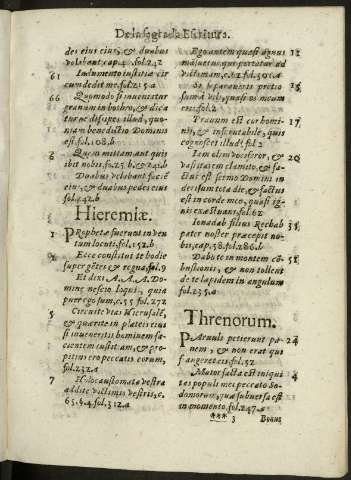 De la sagrada Escritura.
dei eius eius, & duabus
volabant, cap. 4. fol. 242
61 Indumento iustitiæ cir
cumdedit me. fol. 215. a
66 Quomodo si inueniatur
granum in bothro, & dica
tur ne disipes illud, quo-
niam benedictio Domini
est. fol. 108. b
6 Quem mittam aut quis
ibit nobis. fo. 25. b. & 242. b
Duabus velabant facié
eius, & duabus pedes eius
fol. 242. b
Hieremiæ.
1 Prophetæ fuerunt in ven
tum locuti. fol. 152. b
Ecce constitui te hodie
super gẽtes & regna, fol. 9
Et dixi A. A. A. Do
mine nescio loqui, quia
puer ego sum, c. 55 fol. 272
5 Circuite vias Hierusalẽ,
& quærite in plateis eius
si inueneritis hominem fa-
cientem iustitiam, & pro-
pitius ero peccatis eorum,
fol. 232. a
7 Holocaustomata vestra
addite victimis vestris, c.
65. & 4. fol. 312. a
Ego autem quasi agnus 12
māsuetus qui portatur ad
victimam, c. 12. fol. 301. a
Si separaueris pretio 15
sum à vili, quasi os meum
eris. fol. 2
Prauum est cor homi- 17
nis, & inscrutabile, quis
cognoscet illud? fol. 2
Iam olim vociferor, & 20
vastitatem clamito, & fa-
ctus est sermo Domini in
derisum tota die, & factus
est in corde meo, quasi ig-
nis exæstuans. fol. 62
Ionadab filius Rechab 35
pater noster præcepit no-
bis, cap. 58. fol. 286. b
Dabo te in montem cõ 51
bustionis, & non tollent
de te lapidem in angulum
fol. 235. a
Threnorum.
Paruuli petierunt pa 24
nem, & non erat qui
frangeret eis. fol. 52
Maior facta est iniqui 24
tas populi mei peccato So-
domorum, quæ subuersa est
in momento. fol. 247. a
*** 3 Bonus